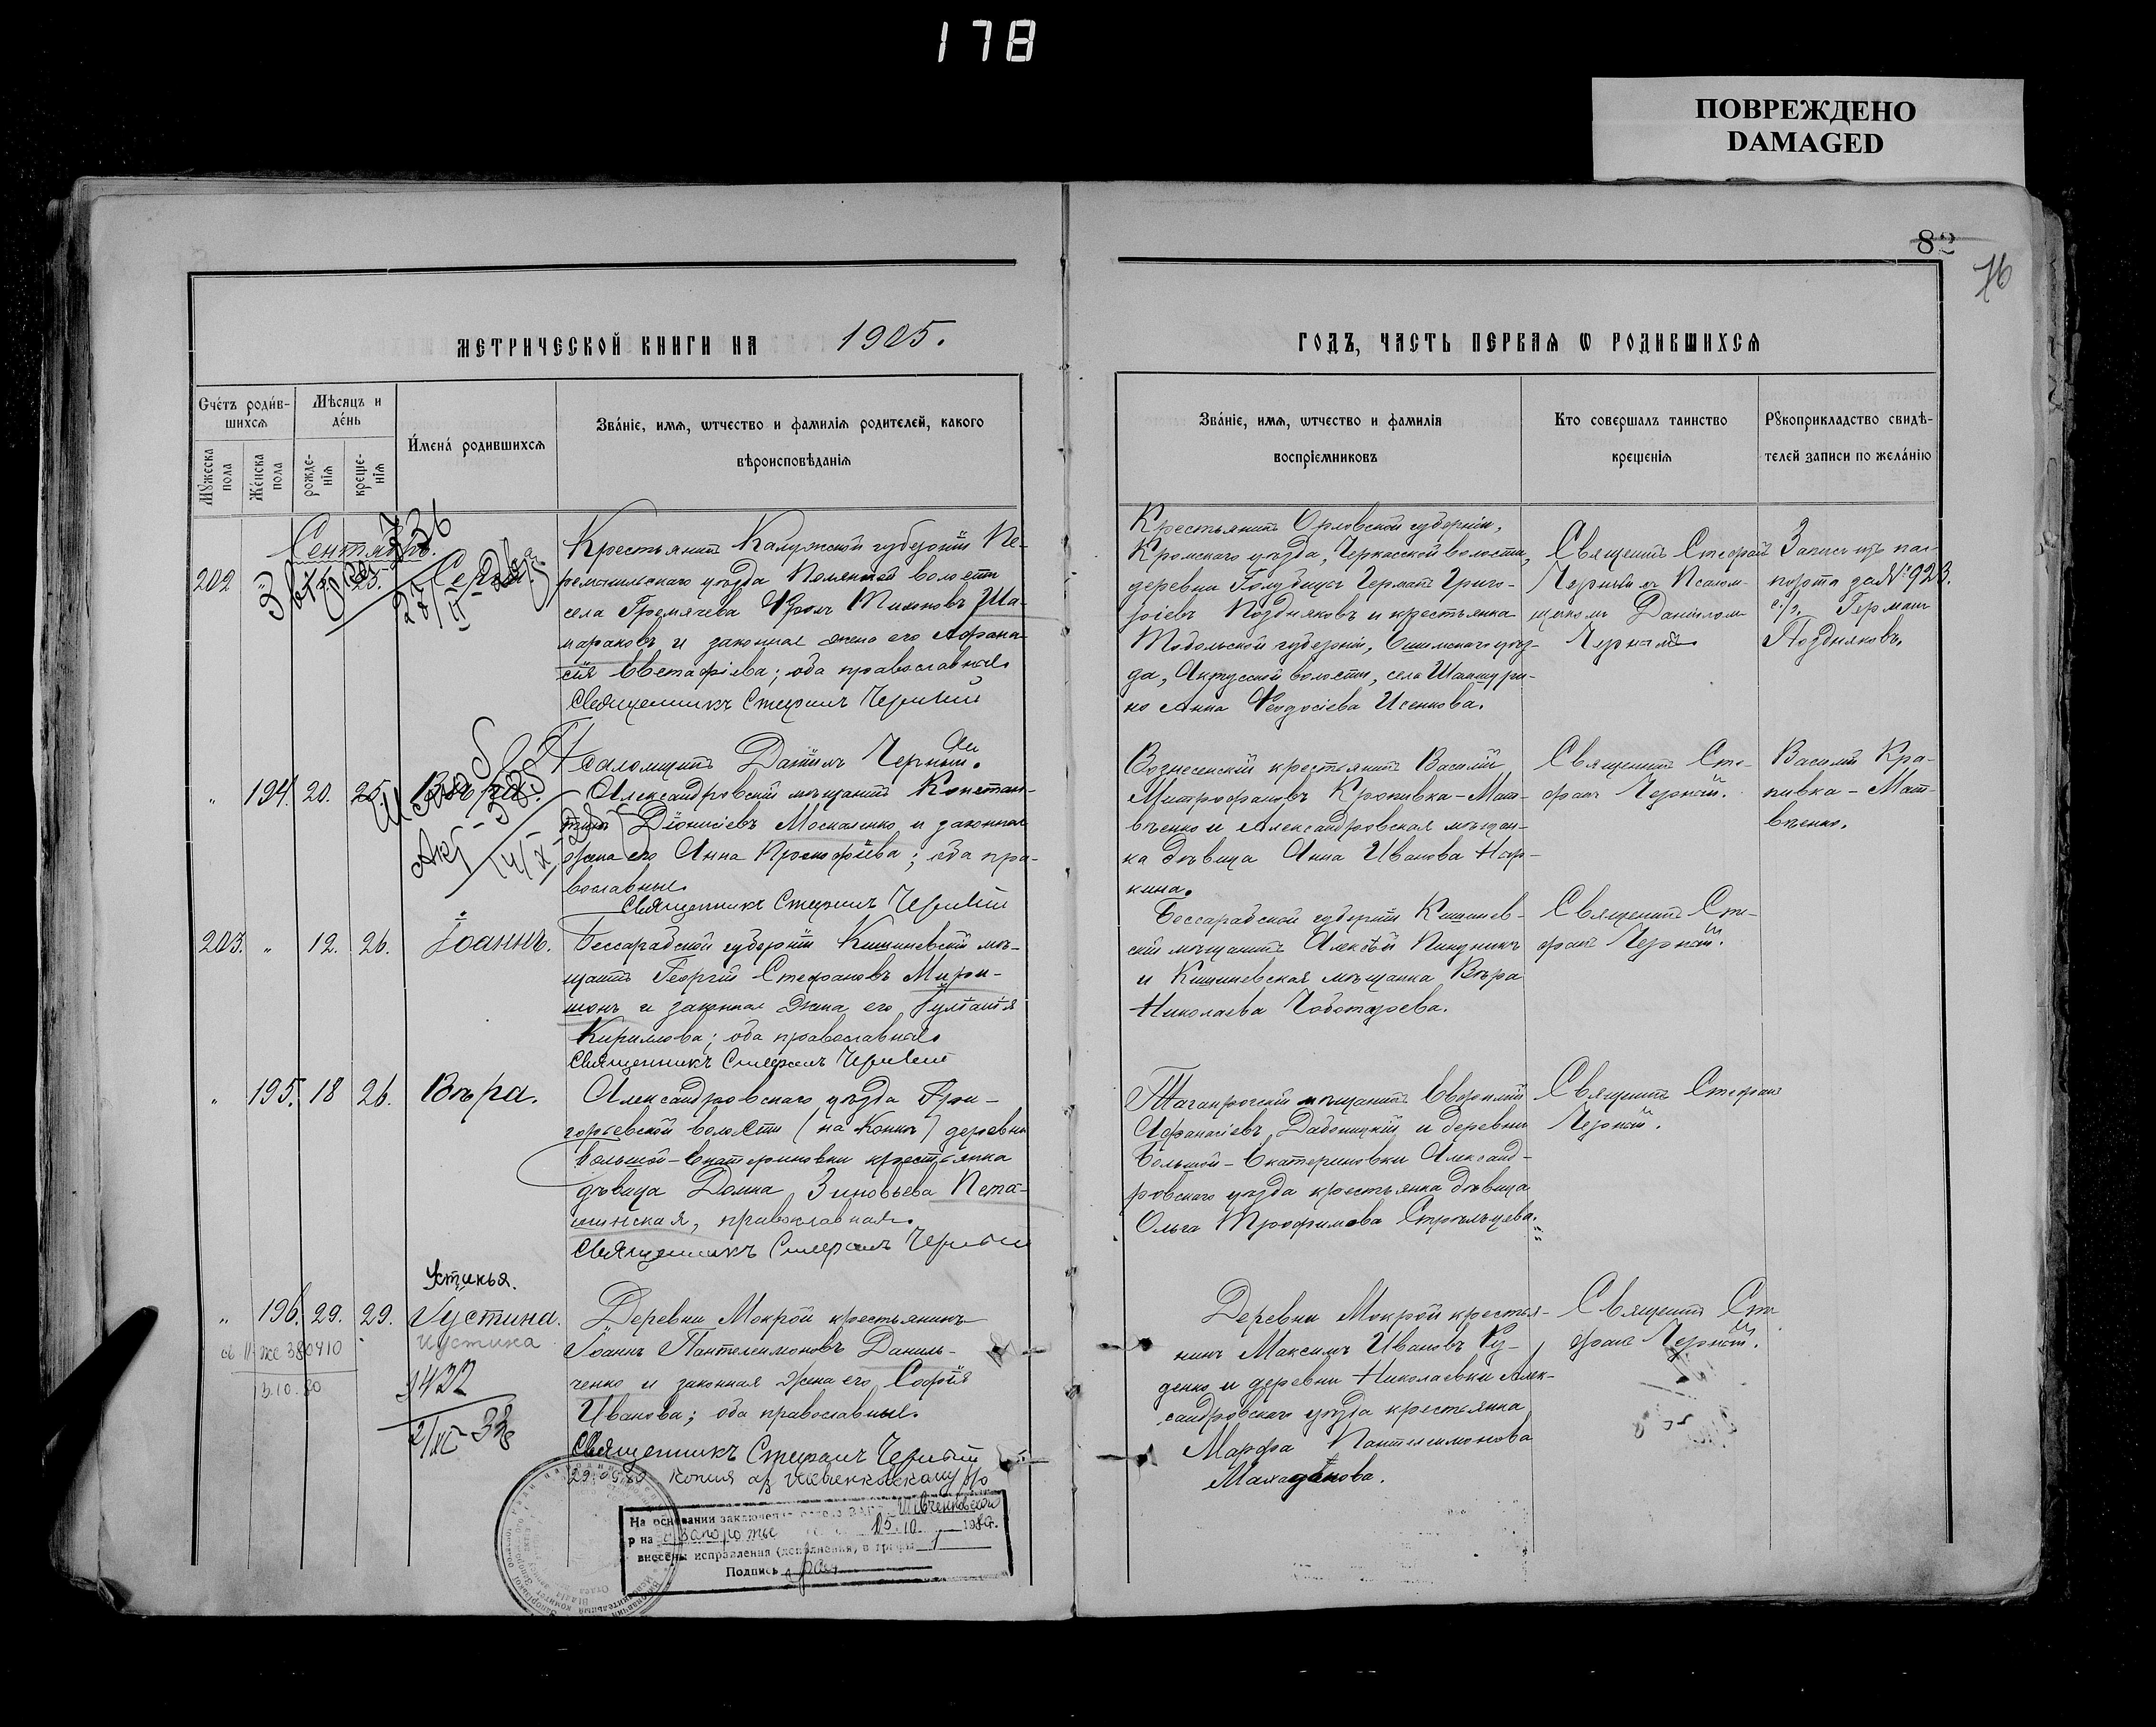 178
ПОВРЕЖДЕНО
DAMAGED
82
76
МЕТРИЧЕСКОЙ КНИГИ НА 1905.
ГОДЪ, ЧАСТЬ ПЕРВАЯ Ѡ РОДИВШИХСЯ
Счétъ роди́в-
шихсѧ
Мѣсяцъ и
де́нь
Мꙋжеска пола
Же́нска пола
рожде-
нїѧ
креще-
нїѧ
И҆мена̀ родившихсѧ
Зва́нїе, имѧ, ѡтчество и фамилїѧ родителей, какого
вѣроисповѣданїѧ
Зва́нїе, имѧ, ѡтчество и фамилїѧ
воспрїемниковъ
Кто совершалъ таинство
крещенїѧ
Рꙋкоприкладство свидѣ-
телей записи по жела́нїю
Сентябрь.
202
Крестьянинъ Калужской губерніи Пе-
ремышльскаго уѣзда
волости
села Гремячева Фролъ Тихоновъ Ша-
мараковъ и законная жена его Афана-
сія Евстафіева; оба православные
Священникъ Стефанъ Черный
Крестьянинъ Орловской губерніи,
Кромскаго уѣзда, Черкасской волости,
деревни Голубицы Германъ Григо-
ріевъ Поздняковъ и крестьянка
Тобольской губерніи, Ишимскаго уѣз-
да,
волости, села
но Анна Феодосіева Исенкова.
Священникъ Стефанъ
Черный съ Псалом-
щикомъ Даніилом
Чернымъ
Запись изъ пас-
порта за № 923.
Германъ
Поздняковъ.
Псаломщикъ Даніилъ Черный.
" 194. 20. 25. Вѣра.
Александровскій мѣщанинъ Констан-
тинъ Діонисіевъ Москаленко и законная
жена его Анна Прокофіева; оба пра-
вославные.
Священникъ Стефанъ Черный
Вознесенскій крестьянинъ Василій
Митрофановъ Кропивка-Мат-
вѣенко и Александровская мѣщан-
ка дѣвица Анна Иванова
кина.
Священникъ Сте-
фанъ Черный.
Василій Кра-
пивка-Мат-
вѣенко.
203. " 12. 26. Іоаннъ.
Бессарабской губерніи Кишиневскій мѣ-
щанинъ Георгій Стефановъ Мири-
монъ и законная жена его Іуліанія
Кириллова; оба православные
Священникъ Стефанъ Черный
Бессарабской губерніи Кишинев-
скій мѣщанинъ Алексѣй
и Кишиневская мѣщанка Вѣра
Николаева Чоботарева.
Священникъ Сте-
фанъ Черный.
" 195. 18 26. Вѣра.
Александровскаго уѣзда Гри-
горьевской волости (на Конкѣ) деревни
Большой-Екатериновки крестьянка
дѣвица Домна Зиновьева Пета-
шинская, православная.
Священникъ Стефанъ Черный
Таганрогскій мѣщанинъ Евфимій
Афанасіевъ Дабоницкій и деревни
Большой-Екатериновки Александ-
ровскаго уѣзда крестьянка дѣвица
Ольга Трофимова Стрѣльцева.
Священникъ Стефанъ
Черный.
Устинья.
" 196. 29. 29. Іустина.
Иустина
380410
3.10.80
1432
Деревни Мокрой крестьянинъ
Іоаннъ Пантелеимоновъ Даниль-
ченко и законная жена его Софія
Иванова; оба православные.
Священникъ Стефанъ Черный
Деревни Мокрой крестья-
нинъ Максимъ Ивановъ Ру-
денко и деревни Николаевки Алек-
сандровскаго уѣзда крестьянка
Марфа Пантелеимонова
Священникъ Сте
фанъ Черный.
На основании заключения отдела ЗАГС
р-на г. Запорожье 15.10. 1980г.
внесены исправления (дополнения) в графы 1
Подпись